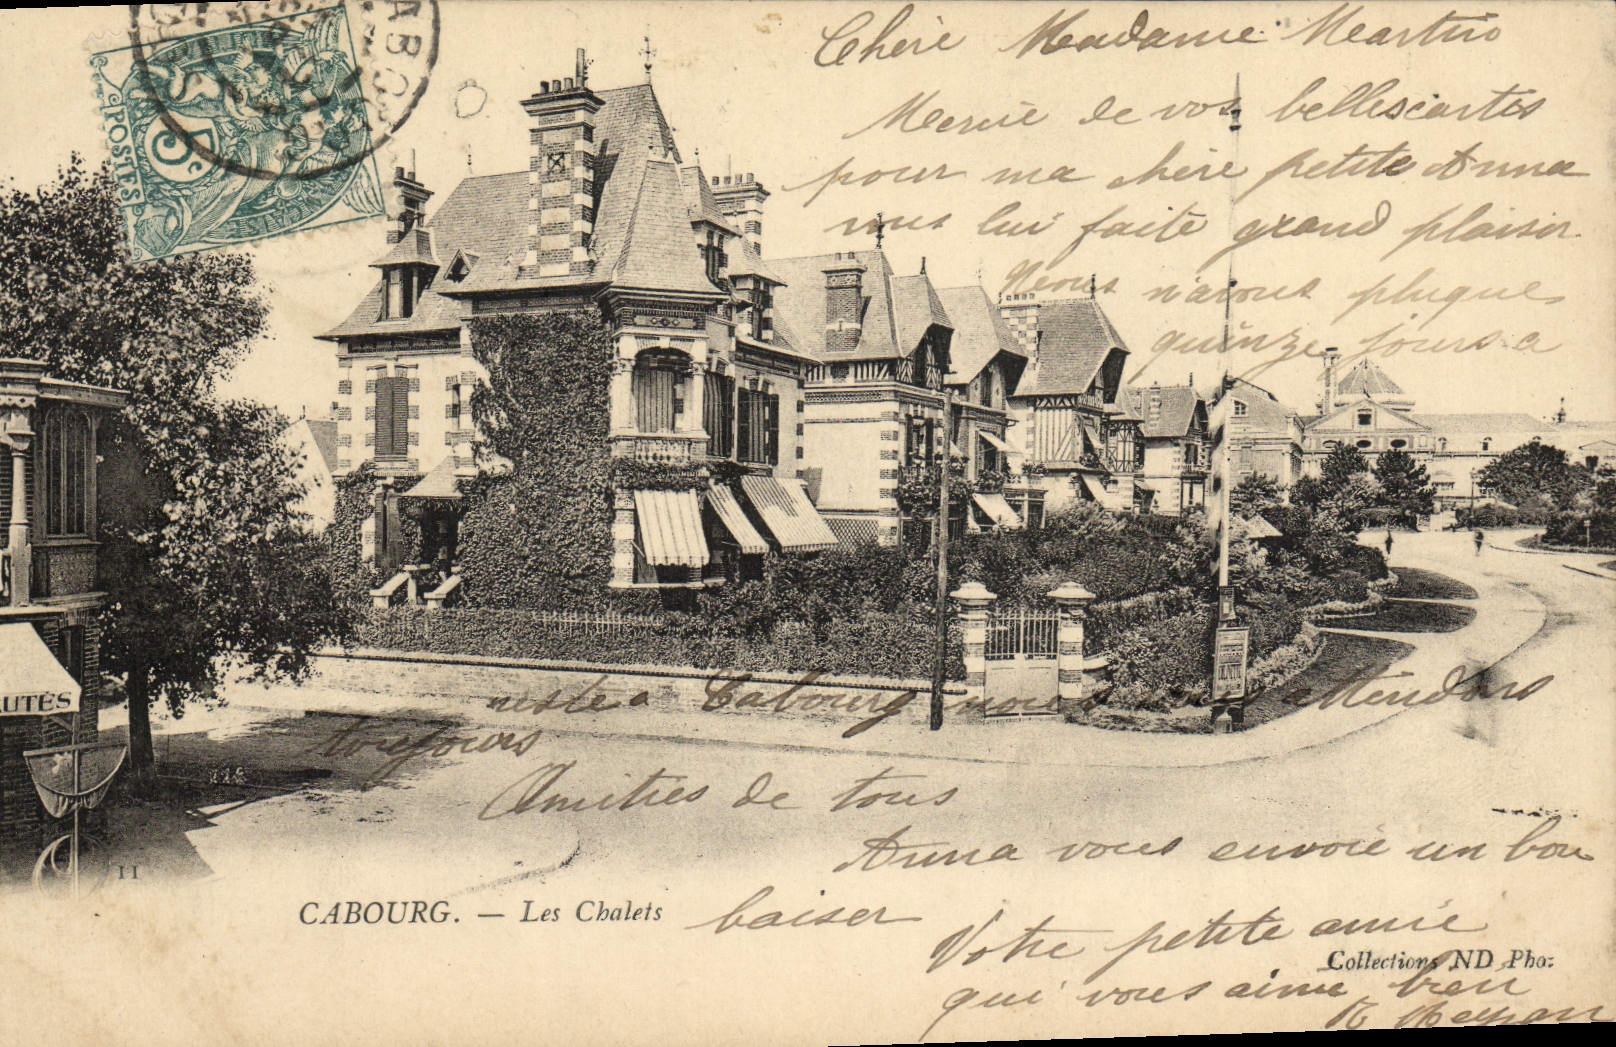 CABO
POSTES
5c
Chère Madame Martin
Mercie de vos belles cartes
pour ma chère petite Anna
vous lui faite grand plaisir
Nous n'avons plu que
quinze jours a
resté a Cabourg nous vous attendons
toujours
Amitiés de tous
Anna vous envoie un bon
baiser
Votre petite amie
qui vous aime bien
UTÉS
11
CABOURG. — Les Chalets
Collections ND Phot